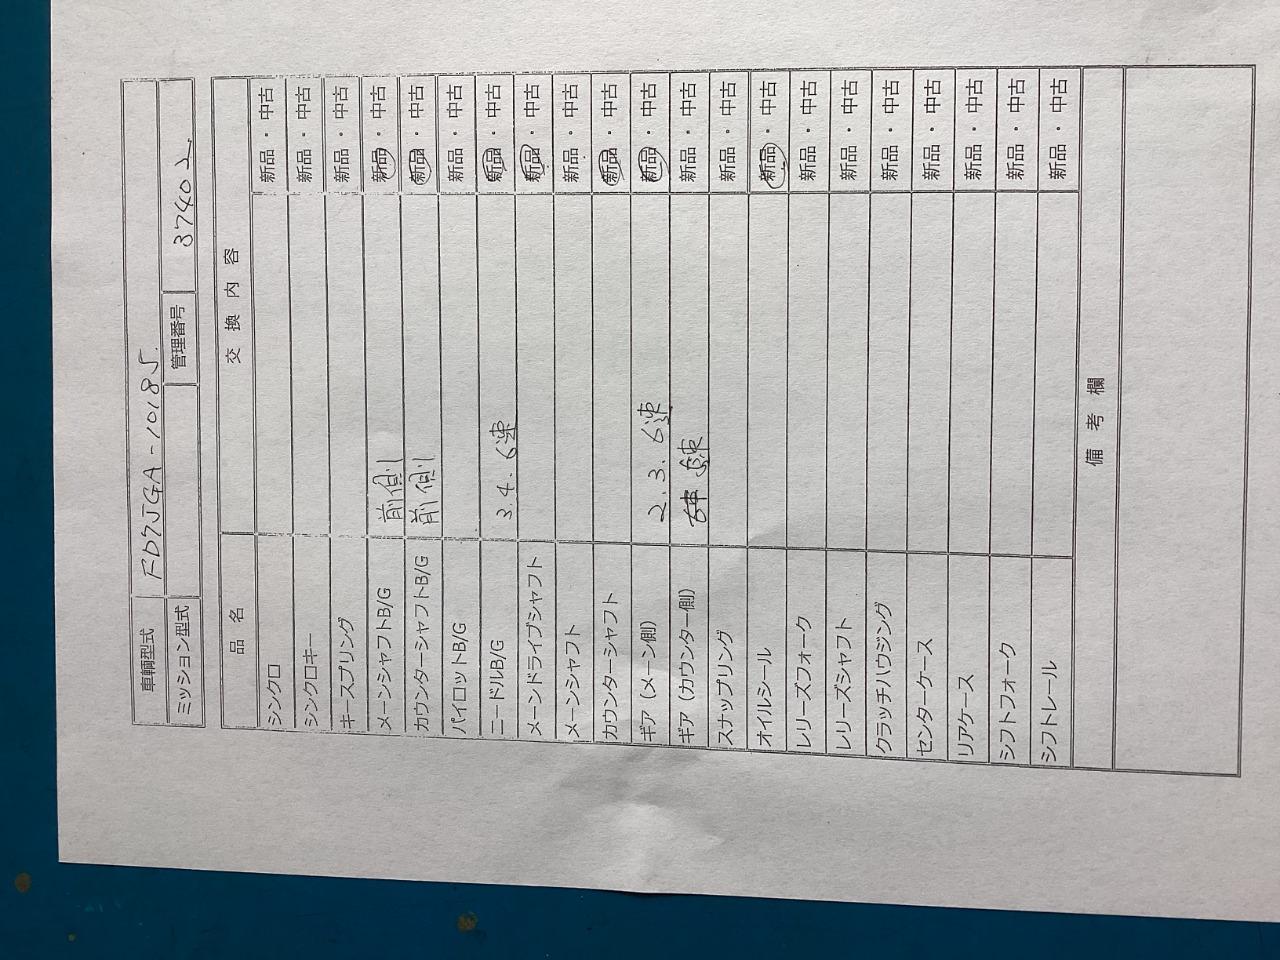 車輌型式 FD7JGA-10185
ミッション型式 管理番号 37402
品 名 交 換 内 容
シンクロ 新品・中古
シンクロキー 新品・中古
キースプリング 新品・中古
メーンシャフトB/G 前側 新品・中古
カウンターシャフトB/G 前側 新品・中古
パイロットB/G 新品・中古
ニードルB/G 3 4. 6速 新品・中古
メーンドライブシャフト 新品・中古
メーンシャフト 新品・中古
カウンターシャフト 新品・中古
ギア（メーン側） 2. 3. 6速 新品・中古
ギア（カウンター側） 新品・中古
スナップリング 新品・中古
オイルシール 新品・中古
レリーズフォーク 新品・中古
レリーズシャフト 新品・中古
クラッチハウジング 新品・中古
センターケース 新品・中古
リアケース 新品・中古
シフトフォーク 新品・中古
シフトレール 新品・中古
備 考 欄